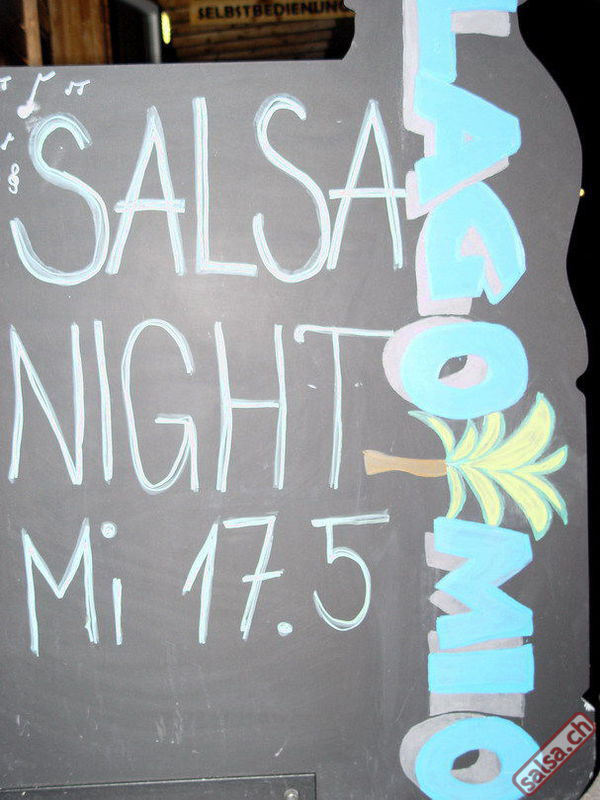 SELBSTBEDIENUNG
SALSA
NIGHT
Mi 17.5
LAGO MIO
salsa.ch